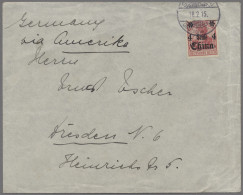 Germany
via Amerika
Herrn
Ernst Escher
Dresden N. 6
Heinrichstr. 5.
China